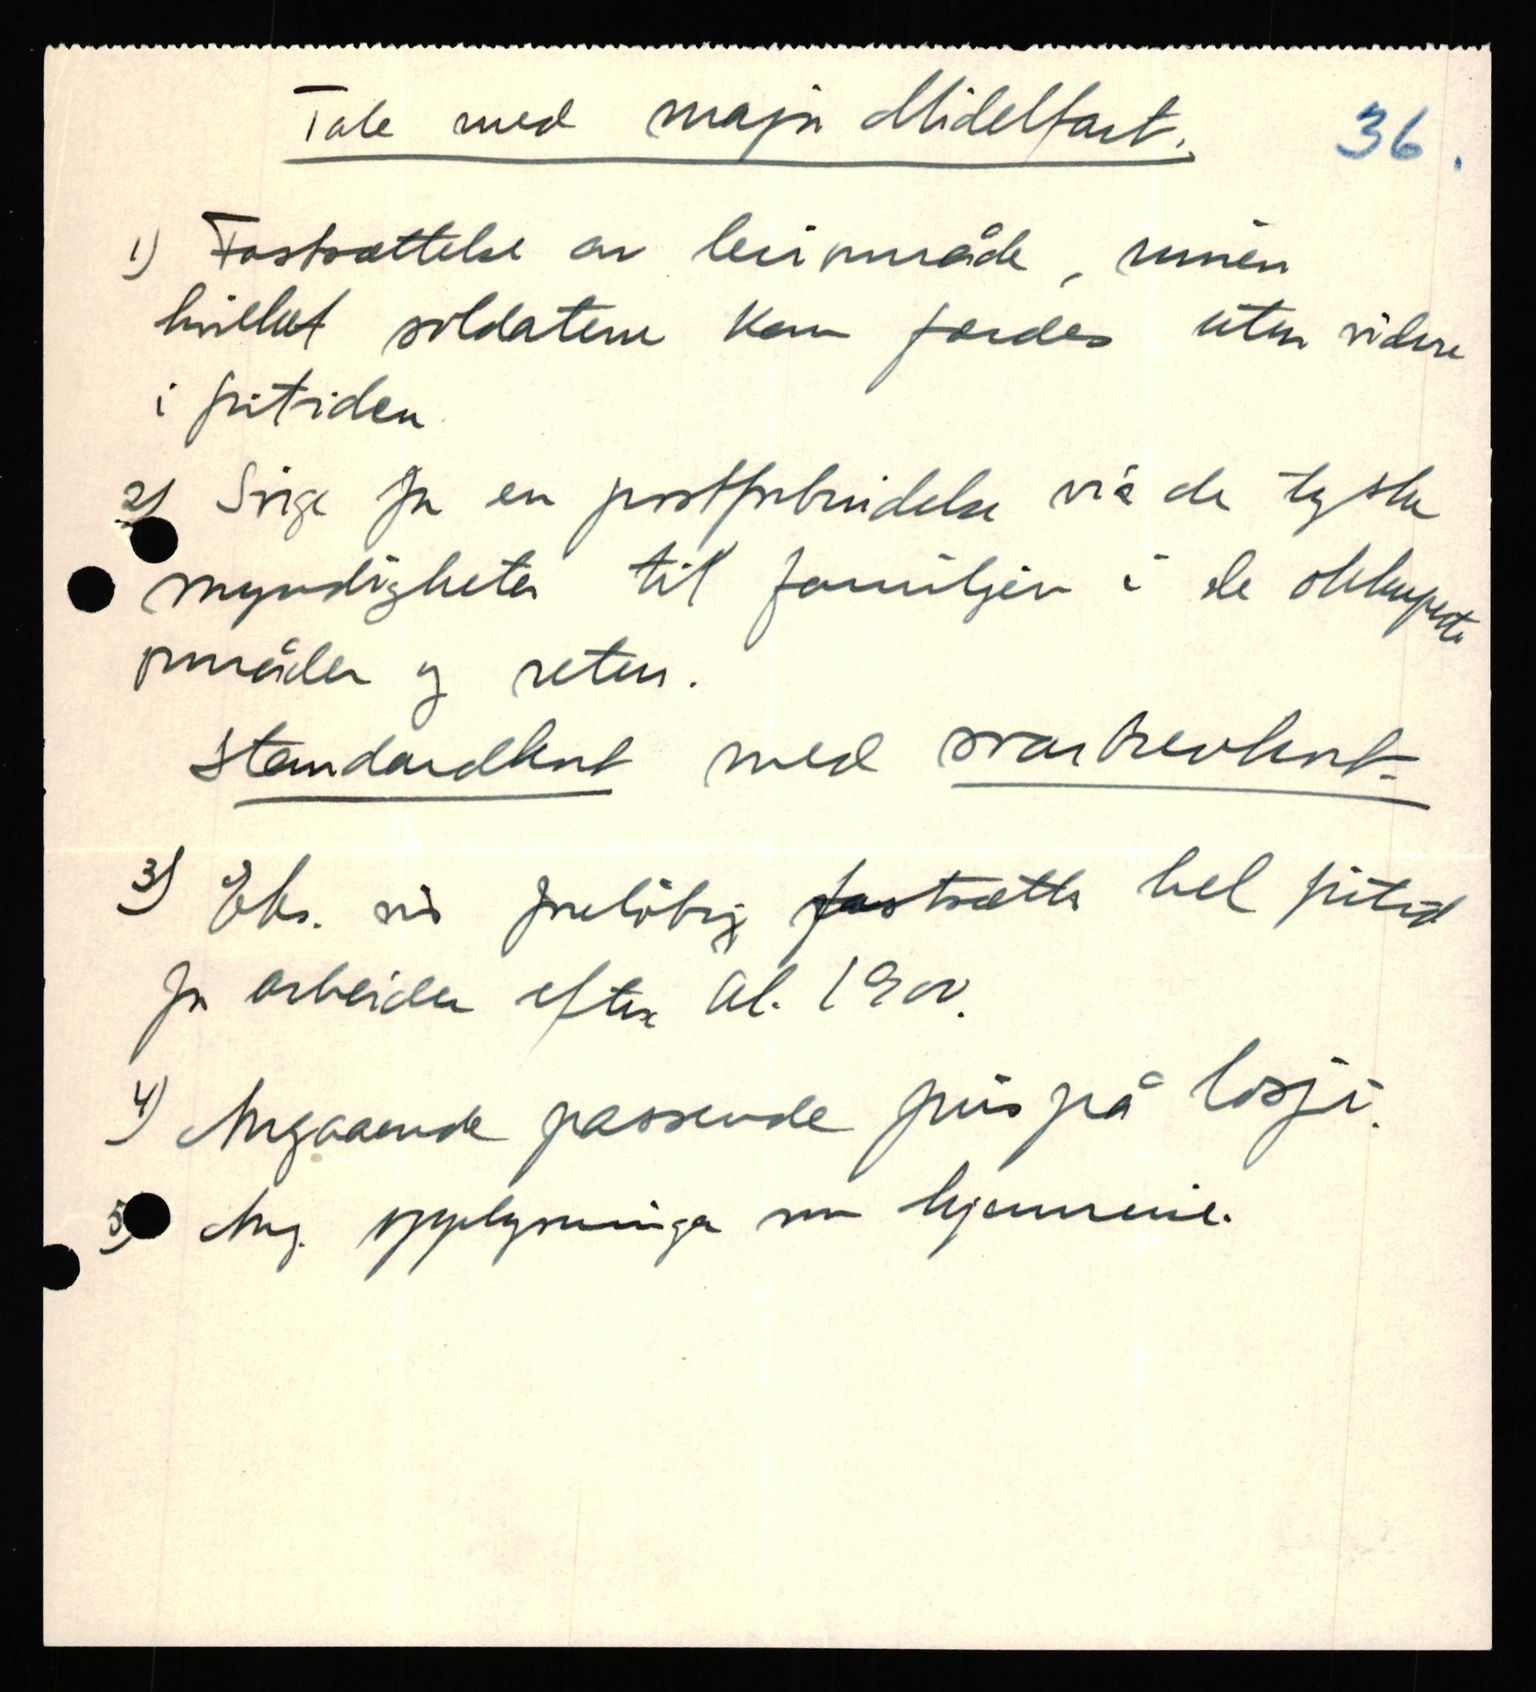 Tale med major Midelfart.
36.
1) Fastsættelse av leirområde, innen
hvilket soldatene kan færdes uten videre
i fritiden
2) Sörge for en postforbindelse via de tyske
myndigheter til familjen i de okkuperte
områder og retur.
Standardkort med svarbrevkort.
3) Eks. vis foreløbig fastsætte hel fritid
for arbeider efter kl. 1900.
4) Angaaende passende pris på losji.
5) Ang. opplysninger om hjemreise.